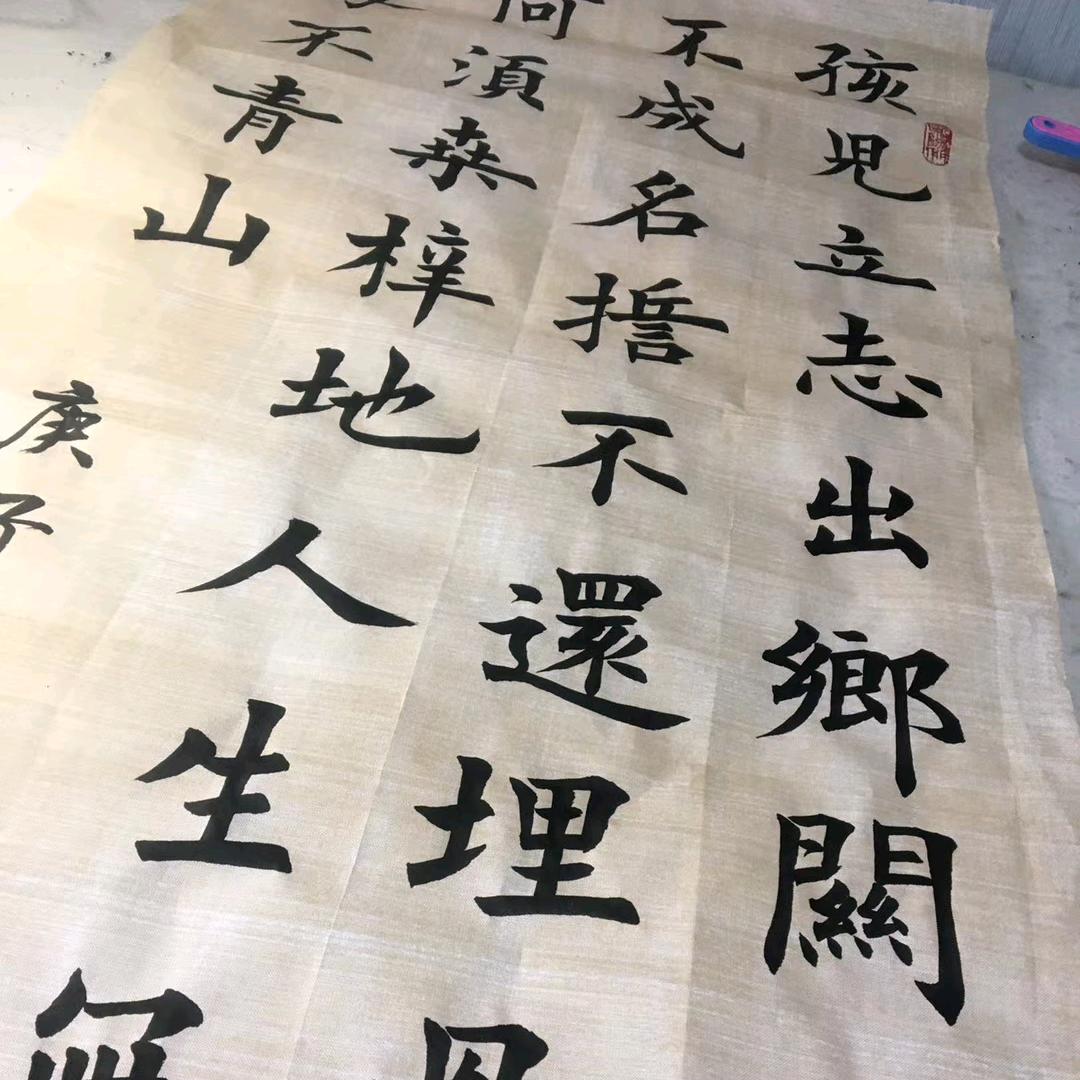 孩兒立志出鄉關
不成名誓不還埋
何須桒梓地人生無
不青山
庚子